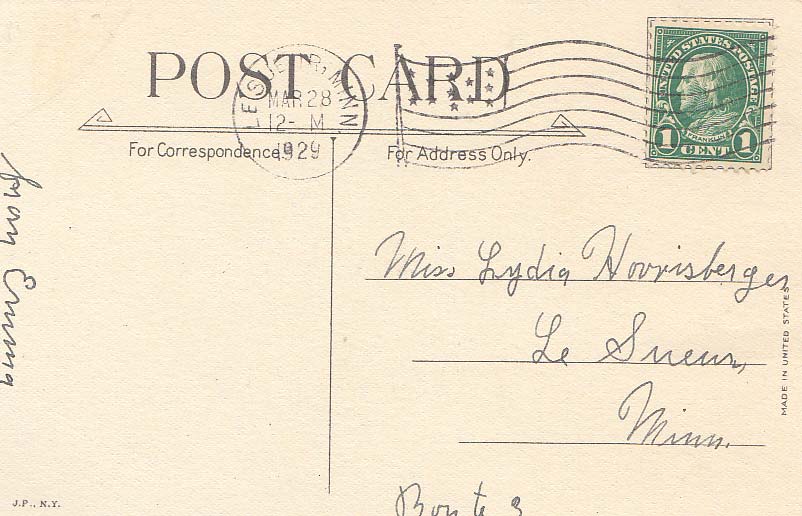 POST CARD
LE SUEUR, MINN
MAR 28
12- M
1929
UNITED STATES POSTAGE
FRANKLIN
1 CENT 1
For Correspondence.
For Address Only.
from Emma
Miss Lydia Hoovisberger
Le Sueur,
Minn.
Route 3
MADE IN UNITED STATES
J.P., N.Y.